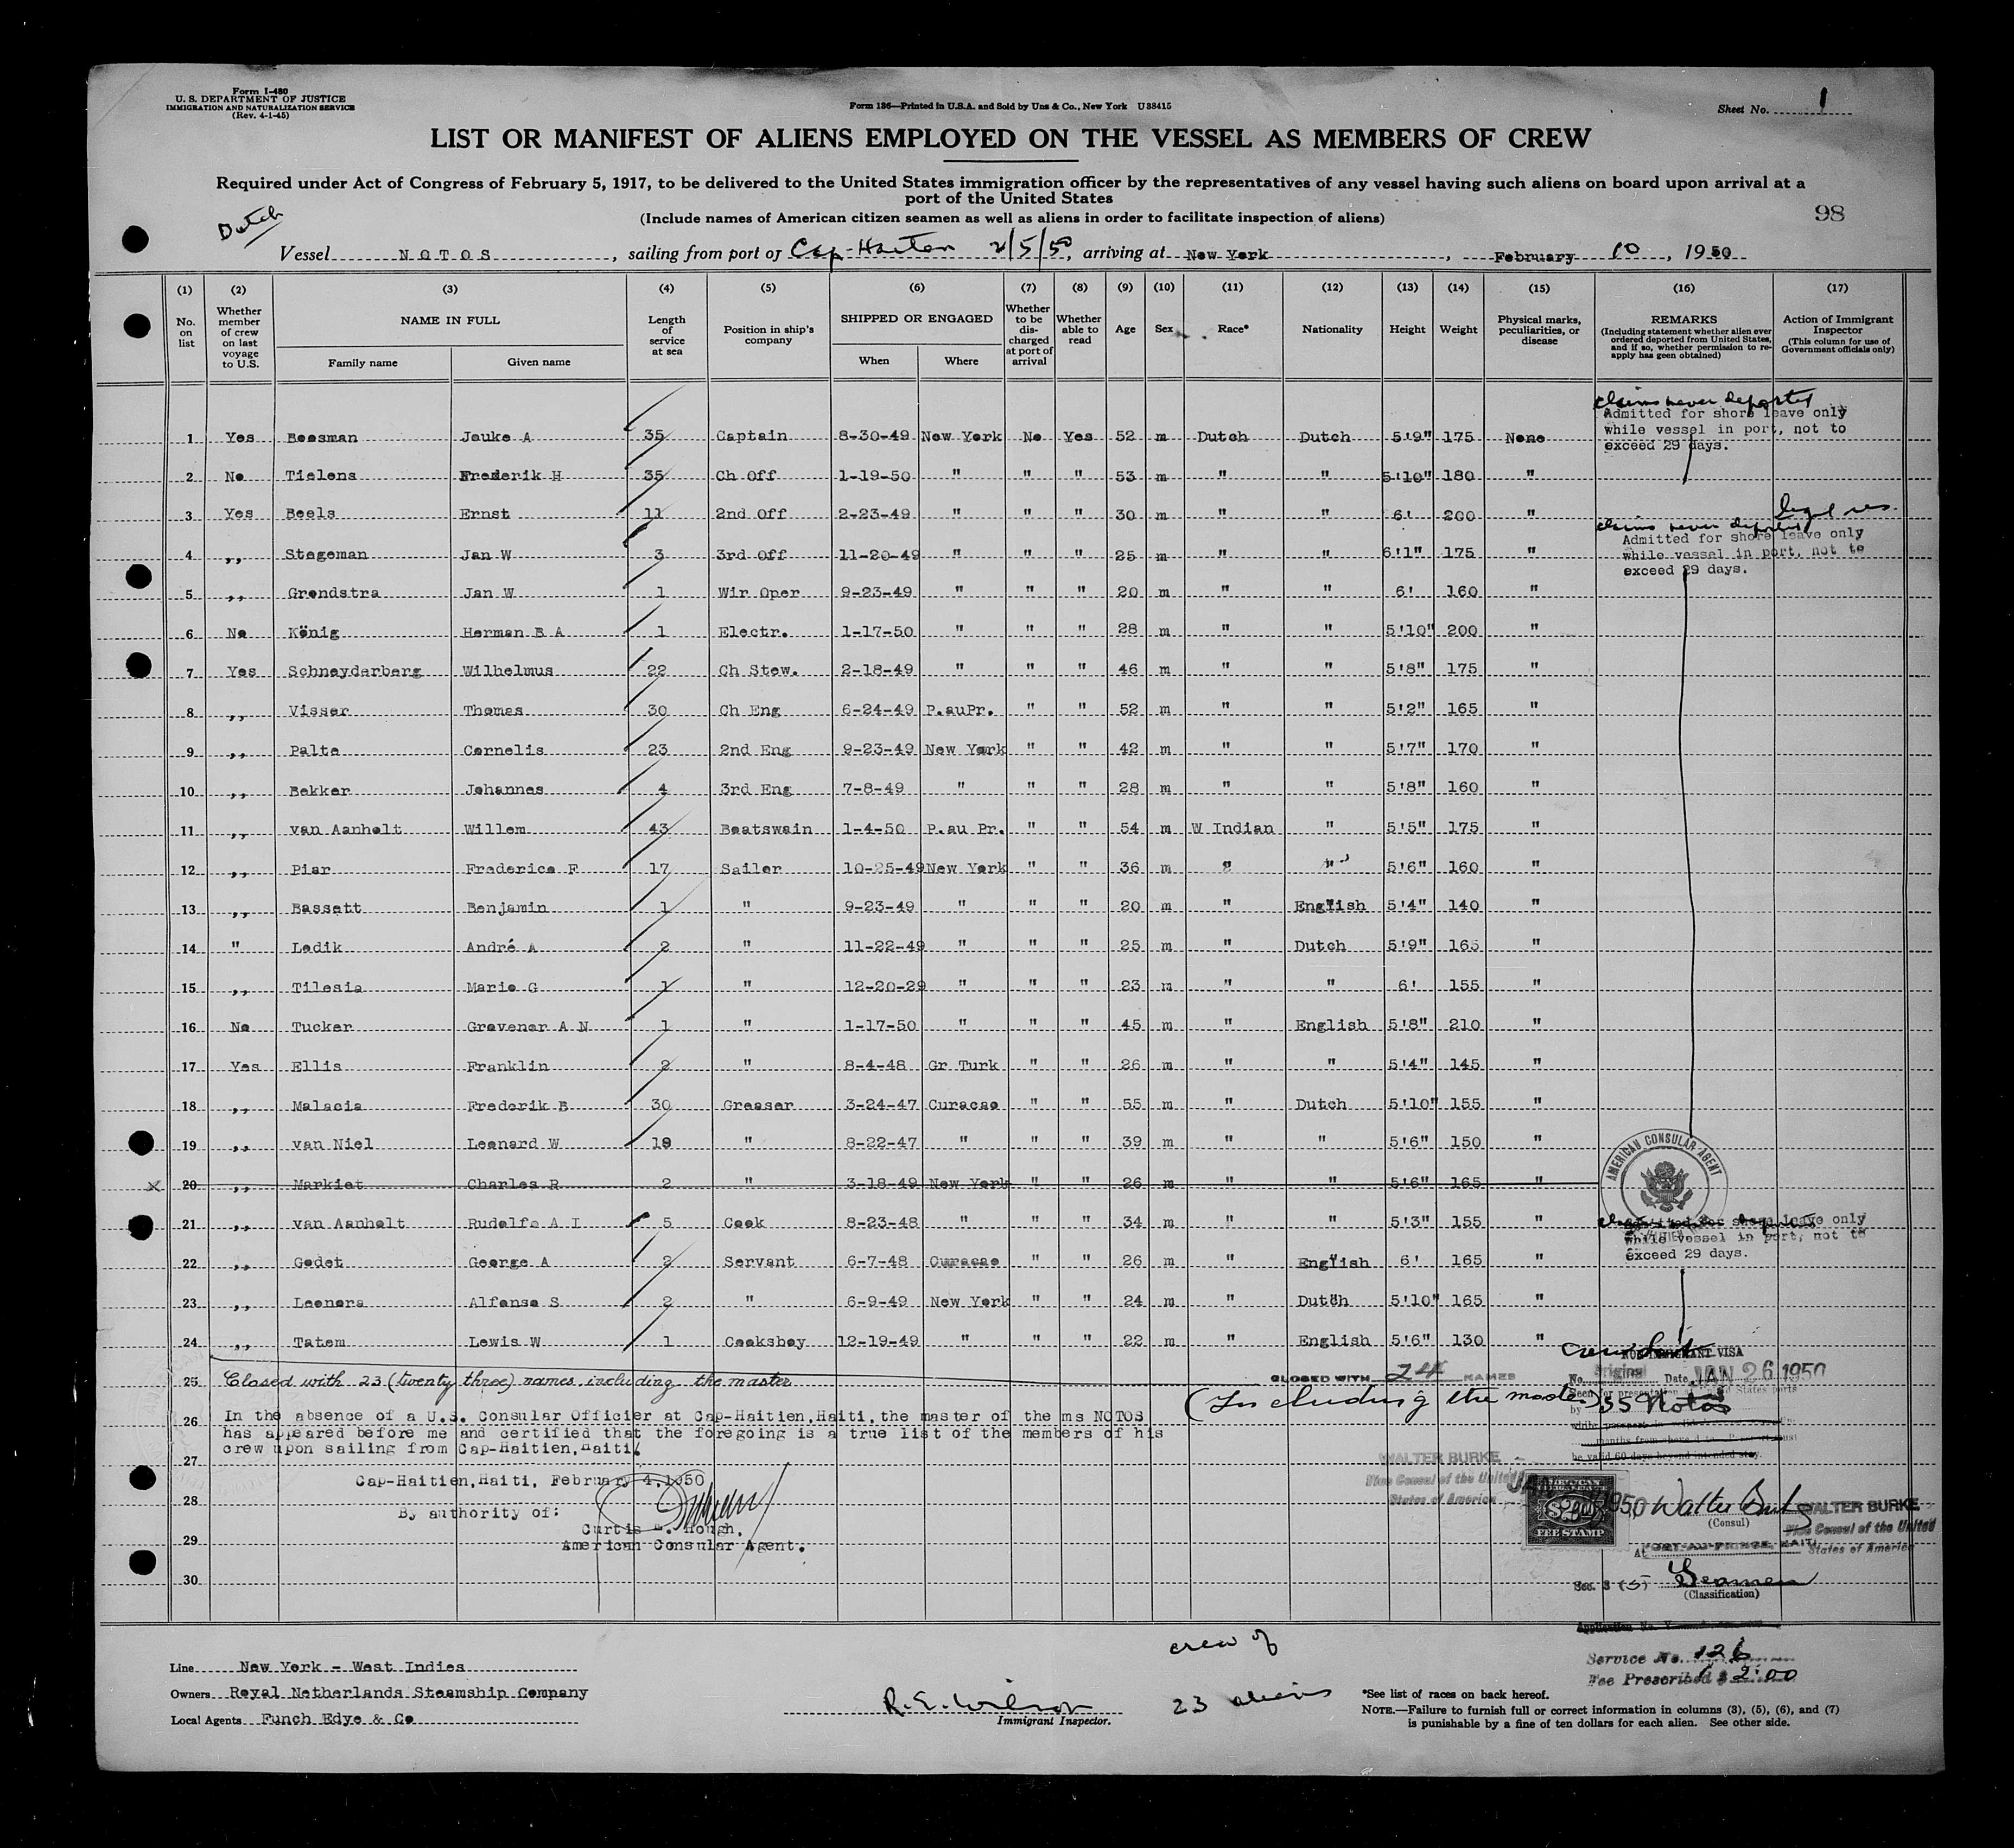 Form I-480
U. S. DEPARTMENT OF JUSTICE
IMMIGRATION AND NATURALIZATION SERVICE
(Rev. 4-1-45)
Form 136—Printed in U.S.A. and Sold by Unz & Co., New York U 38415
Sheet No. 1
LIST OR MANIFEST OF ALIENS EMPLOYED ON THE VESSEL AS MEMBERS OF CREW
Required under Act of Congress of February 5, 1917, to be delivered to the United States immigration officer by the representatives of any vessel having such aliens on board upon arrival at a
port of the United States
(Include names of American citizen seamen as well as aliens in order to facilitate inspection of aliens)
98
Dutch
Vessel NOTOS, sailing from port of Cap-Haitien 2/5/50, arriving at New York, February 10, 1950
(1) (2) (3) (4) (5) (6) (7) (8) (9) (10) (11) (12) (13) (14) (15) (16) (17)
No. on list
Whether member of crew on last voyage to U.S.
NAME IN FULL
Family name
Given name
Length of service at sea
Position in ship's company
SHIPPED OR ENGAGED
When
Where
Whether to be discharged at port of arrival
Whether able to read
Age
Sex
Race*
Nationality
Height
Weight
Physical marks, peculiarities, or disease
REMARKS
(Including statement whether alien ever ordered deported from United States, and if so, whether permission to re-apply has geen obtained)
Action of Immigrant Inspector
(This column for use of Government officials only)
claims never deported
Admitted for shore leave only
while vessel in port, not to
exceed 29 days.
1 Yes Beesman Jauke A 35 Captain 8-30-49 New York No Yes 52 m Dutch Dutch 5'9" 175 None
2 No Tielens Frederik H 35 Ch Off 1-19-50 " " " 53 m " " 5'10" 180 "
3 Yes Beels Ernst 11 2nd Off 2-23-49 " " " 30 m " " 6' 200 " legal res.
claims never deported
Admitted for shore leave only
while vessel in port, not to
exceed 29 days.
4 ,, Stegeman Jan W 3 3rd Off 11-20-49 " " " 25 m " " 6'1" 175 "
5 ,, Grondstra Jan W 1 Wir Oper 9-23-49 " " " 20 m " " 6' 160 "
6 No König Herman B A 1 Electr. 1-17-50 " " " 28 m " " 5'10" 200 "
7 Yes Schneyderberg Wilhelmus 22 Ch Stew. 2-18-49 " " " 46 m " " 5'8" 175 "
8 ,, Visser Thomas 30 Ch Eng 6-24-49 P.auPr. " " 52 m " " 5'2" 165 "
9 ,, Palte Cornelis 23 2nd Eng 9-23-49 New York " " 42 m " " 5'7" 170 "
10 ,, Bekker Johannes 4 3rd Eng 7-8-49 " " " 28 m " " 5'8" 160 "
11 ,, van Aanholt Willem 43 Boatswain 1-4-50 P.au Pr. " " 54 m W Indian " 5'5" 175 "
12 ,, Piar Frederico F 17 Sailor 10-25-49 New York " " 36 m " " 5'6" 160 "
13 ,, Bassett Benjamin 1 " 9-23-49 " " " 20 m " English 5'4" 140 "
14 " Ledik André A 2 " 11-22-49 " " " 25 m " Dutch 5'9" 165 "
15 ,, Tilesia Mario G 1 " 12-20-29 " " " 23 m " " 6' 155 "
16 No Tucker Grovener A N 1 " 1-17-50 " " " 45 m " English 5'8" 210 "
17 Yes Ellis Franklin 2 " 8-4-48 Gr Turk " " 26 m " " 5'4" 145 "
18 ,, Malacia Frederik B 30 Greaser 3-24-47 Curacao " " 55 m " Dutch 5'10" 155 "
19 ,, van Niel Leonard W 18 " 8-22-47 " " " 39 m " " 5'6" 150 "
x 20 ,, Markiet Charles R 2 " 3-18-49 New York " " 26 m " " 5'6" 165 "
AMERICAN CONSULAR AGENT
21 ,, van Aanholt Rudolfo A I 5 Cook 8-23-48 " " " 34 m " " 5'3" 155 "
Admitted for shore leave only
while vessel in port, not to
exceed 29 days.
22 ,, Godet George A 2 Servant 6-7-48 Curacao " " 26 m " English 6' 165 "
23 ,, Leonora Alfonso S 2 " 6-9-49 New York " " 24 m " Dutch 5'10" 165 "
24 ,, Tatem Lewis W 1 Cooksboy 12-19-49 " " " 22 m " English 5'6" 130 "
25 Closed with 23 (twenty three) names including the master
CLOSED WITH 24 NAMES
(Including the master)
26 In the absence of a U.S. Consular Officier at Cap-Haitien, Haiti, the master of the ms NOTOS
has appeared before me and certified that the foregoing is a true list of the members of his
crew upon sailing from Cap-Haitien, Haiti.
27
Cap-Haitien, Haiti, February 4, 1950
28 By authority of:
Curtis Hough,
29 American Consular Agent.
30
crew list
NON IMMIGRANT VISA
No. Original Date JAN 26 1950
Seen for presentation at United States ports
by SS Notos
be valid 60 days beyond intended stay.
WALTER BURKE
Vice Consul of the United
States of America
JAN 1950
$2
FEE STAMP
Walter Burke
(Consul)
WALTER BURKE
Vice Consul of the United
States of America
At PORT-AU-PRINCE, HAITI
Sec. 3 (5) Seamen
(Classification)
Service No. 126
Fee Prescribed $2.00
Line New York - West Indies
Owners Royal Netherlands Steamship Company
Local Agents Funch Edye & Co
R.E. Wilson
Immigrant Inspector.
crew of
23 aliens
*See list of races on back hereof.
NOTE.—Failure to furnish full or correct information in columns (3), (5), (6), and (7)
is punishable by a fine of ten dollars for each alien. See other side.